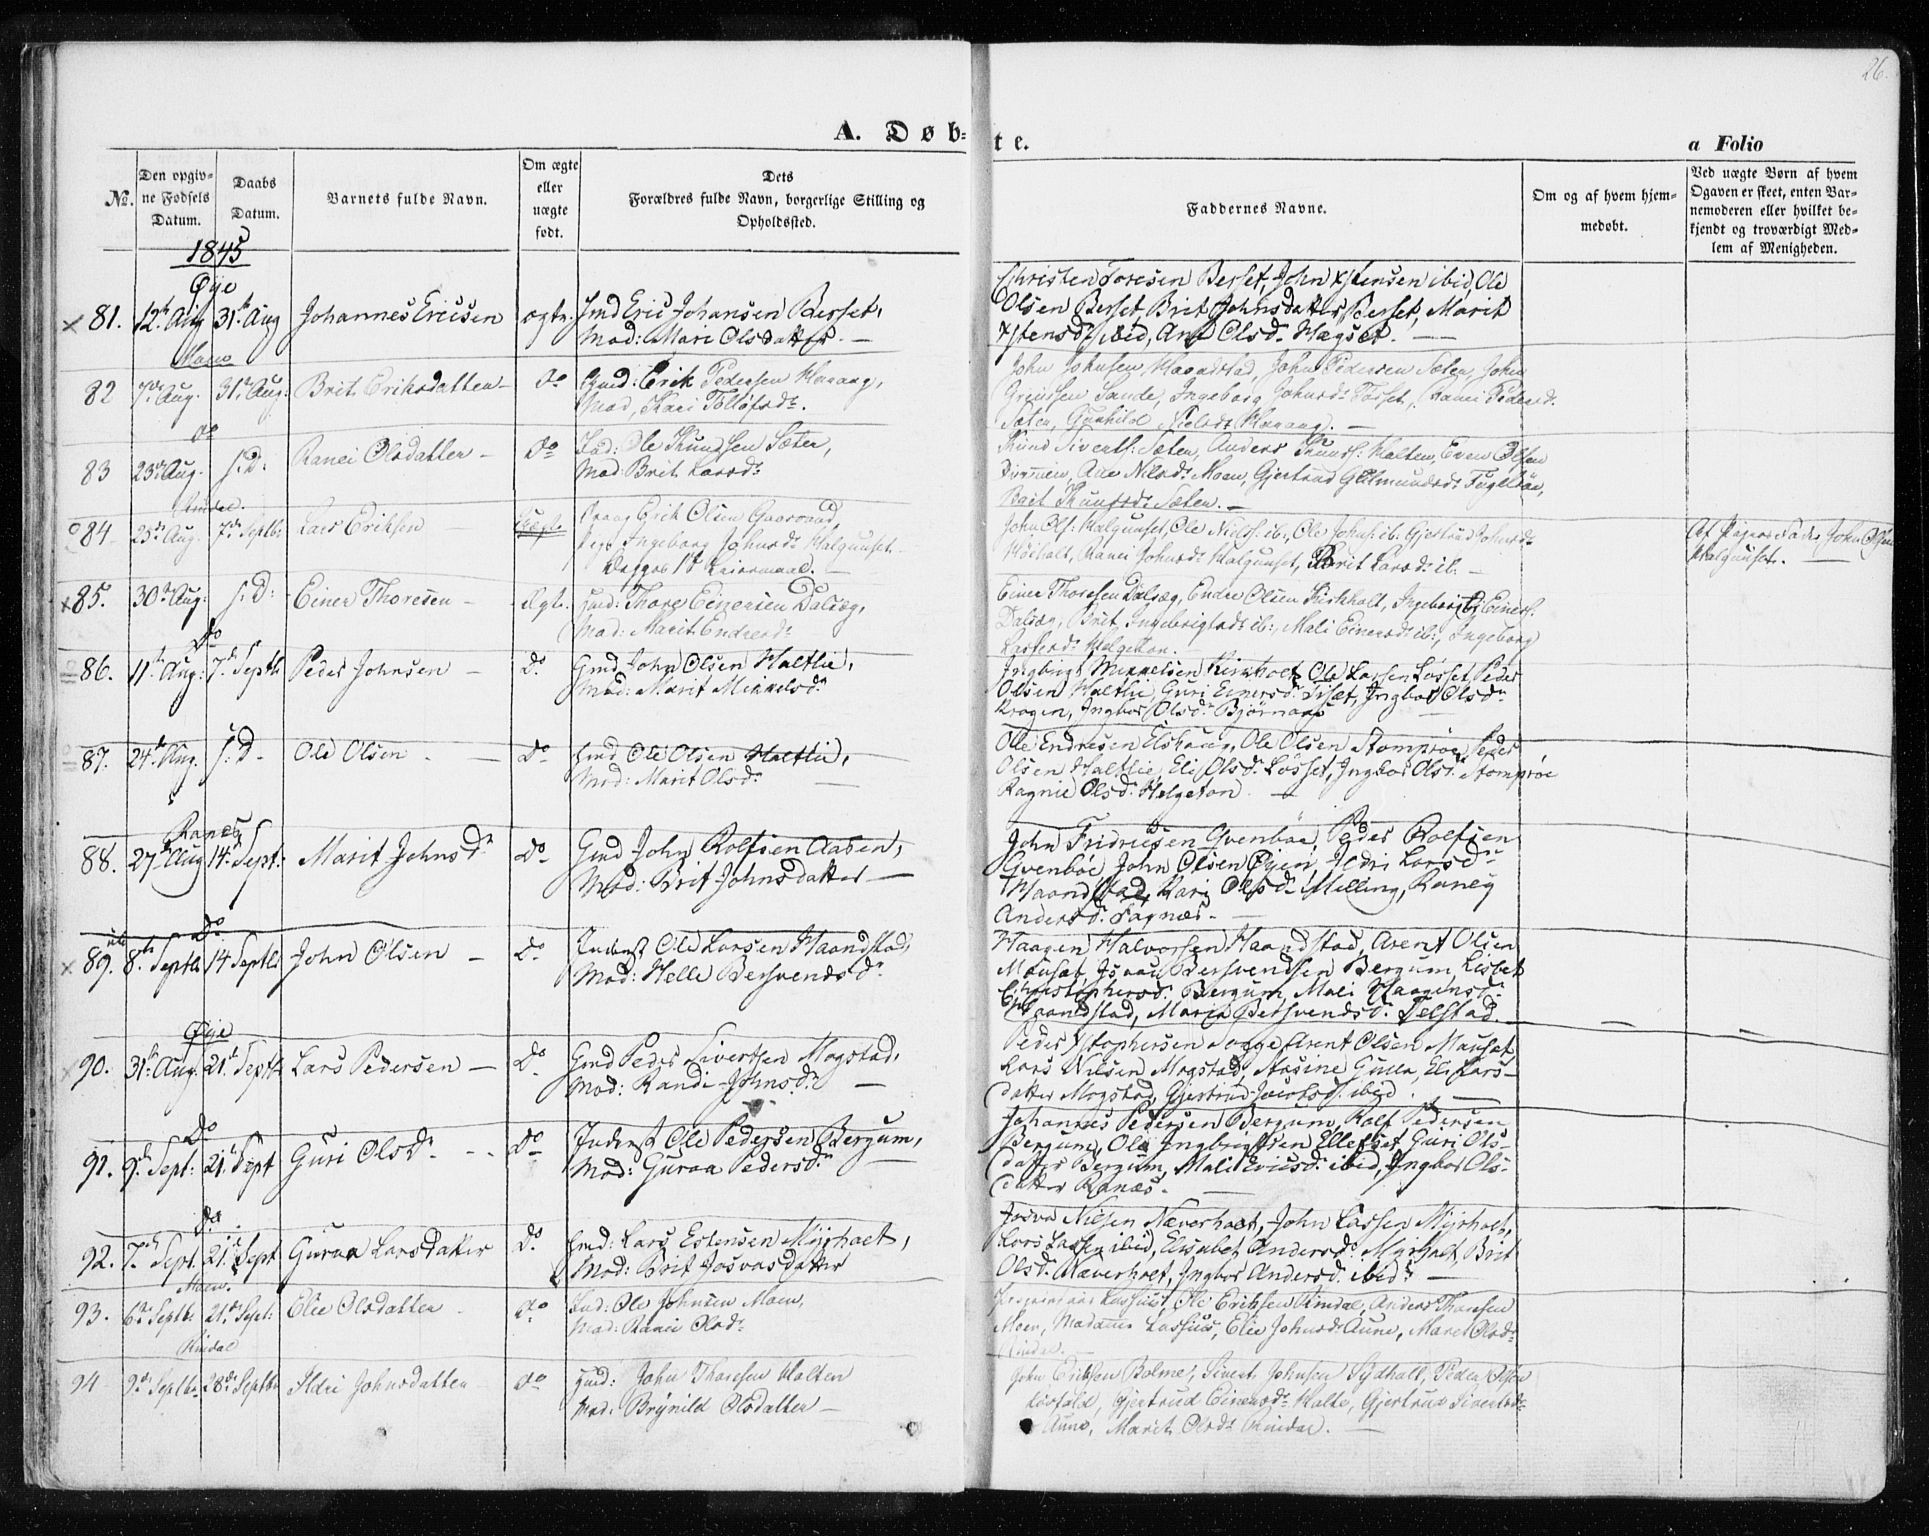 26.
A. Døb-
te.
a Folio
No.
Den opgiv-
ne Fødsels
Datum.
Daabs
Datum.
Barnets fulde Navn.
Om ægte
eller
uægte
født.
Dets
Forældres fulde Navn, borgerlige Stilling og
Opholdssted.
Faddernes Navne.
Om og af hvem hjem-
medøbt.
Ved uægte Børn af hvem
Ogaven er skeet, enten Bar-
nemoderen eller hvilket be-
kjendt og troværdigt Med-
lem af Menigheden.
1845
Øye
81. 12te Aug 31te Aug Johannes Ericsen ægte. Gmd Eric Johansen Berset,
Mod: Mari Olsdatter. —
Christen Toresen Berset, John Estensen ibid, Ole
Olsen Berset, Brit Johnsdatter Berset, Marit
Estensdr ibid, Ane Olsdr Hægset. —
Moen
82 7de Aug. 31te Aug: Brit Eriksdatter — Do Gmd: Erik Pedersen Haaaug,
Mod, Kari Tolløfsdr.
John Johnsen Haandstad, John Pedersen Sæter, John
Sande, Ingeborg Johnsdr Fosset, Ranei Pedersdr
Sæter, Gunhild Nielsdr —
Do
83 23de Aug. s: D: Ranei Olsdatter — Do Ole Knudsen Sæter,
Mod Brit Larsdr
Knud Siverts: Sæter, Anders Knuds: Halten, Even Olsen
Ane Nilsdr Moen, Gjertrud Gutmundsdr
Brit Knudsdr Sæter. —
Rindal.
84 25de Aug. 7de Septbr: Lars Eriksen — Uægte Erik Olsen
Pige Ingeborg Johnsdr Halgunset
Begges 1te Leiermaal. —
John Ols: Halgunset, Ole Niels: ib:, Ole Johns: ib. Gjertrud Johnsdr
Ranei Johnsdr Halgunset, Marit Larsdr ib. —
Af Pigens Fader John Olsen
Halgunset. —
85. 30te Aug: s: D: Einer Thoresen — Ægte. Gmd: Thore Einersen Dalsæg,
Mod: Marit Endresdr
Einer Thoresen Dalsæg, Endre Olsen Kirkholt, Ingebrigt Einers:
Dalsæg, Brit Ingebrigtsdr ib:, Mali Einersdr ib:, Ingeborg
Larsdr Helgeton. —
Do
86. 11te Aug: 7de Septbr Peder Johnsen — Do Gmd John Olsen Haltlie,
Mod: Marit Mikkelsdr
Ingbrigt Mikkelsen Kirkholt Ole Larsen Løsset, Peder
Olsen Haltlie, Guri Einersdr Tiset, Ingbor Olsdr
Krogen, Ingbor Olsdr Bjørnaas
87. 24de Aug. s: D. Ole Olsen — Do Gmd Ole Olsen Haltlie,
Mod: Marit Olsdr —
Ole Endresen Elshaug, Ole Olsen Stomprøe Peder
Olsen Haltlie, Eli Olsdr Løsset, Ingbor Olsdr Stomprøe
Ragnie Olsdr Helgeton —
Ranes
88. 27de Aug 14de Sept: Marit Johnsdr Do Gmd John Rolfsen Aasen,
Mod: Brit Johnsdatter —
John Fridricsen Qvenbøe, Peder Rolfsen
Qvenbøe John Olsen Øyen, Ildri Larsdr
Haandstad, Kari Olsdr Melling, Raneig
Andersdr Sagnæs. —
Do
89. 8de Septbr 14 Septbr John Olsen — Do Inderst Ole Larsen Haandstad,
Mod: Helle Bersvendsdr
Haagen Halvorsen Haandstad, Arent Olsen
Mauset, Bersvendsen Bergum, Lisbet
Christophersdr Bergum, Mali Haagensdr
Haandstad, Marit Bersvendsdr Telstad.
Øye
90. 31te Aug. 21de Septbr Lars Pedersen — Do Gmd Peder Sivertsen Mogstad,
Mod: Randi Johnsdr —
Peder Estophersen Sogge Arent Olsen Mauset,
Lars Nilsen Mogstad, Stasine Gulla, Eli Lars-
datter Mogstad, Gjertrud Jacobsdr ibid. —
Do
91. 9de Sept: 21de Sept Guri Olsdr — Do Inderst Ole Pedersen Bergum,
Mod: Guraa Pedersdr
Johannes Pedersen Bergum, Rolf Pedersen
Bergum, Ole Ingbrigtsen Ellefset, Guri Ols-
datter Bergum, Mali Ericsdr ibid, Ingbor Ols-
datter Ranæs. —
Do.
92. 7de Sept. 21de Sept Guraa Larsdatter Do. Gmd: Lars Estensen Myrholt,
Mod: Brit Josvasdatter
Josva Nilsen Næverholt, John Larsen Myrholt,
Lars Larsen ibid, Elisabet Andersdr Myrholt, Brit
Olsdr Næverholt, Ingbor Andersdr ibidr —
Moen.
93. 6te Septbr 21de Sept: Elie Olsdatter Do Ole Johnsen Moen,
Mod: Ranei Olsdr
Lassius, Ole Eriksen Rindal, Anders Thoresen
Moen, Madame Lassius, Elie Johnsdr Aune, Maret Olsdr
Rindal. —
Rindal
94 9de Septbr. 28de Septbr Ildri Johnsdatter Do Gmd: John Thoresen Halten
Mod: Brynild Olsdatter —
John Eriksen Bolme, Sivert Johnsen Sydhall, Peder Olsen
Gjertrud Einersdr Halte, Gjertrud Sivertsdr
Aune, Marit Olsdr Rindal. —